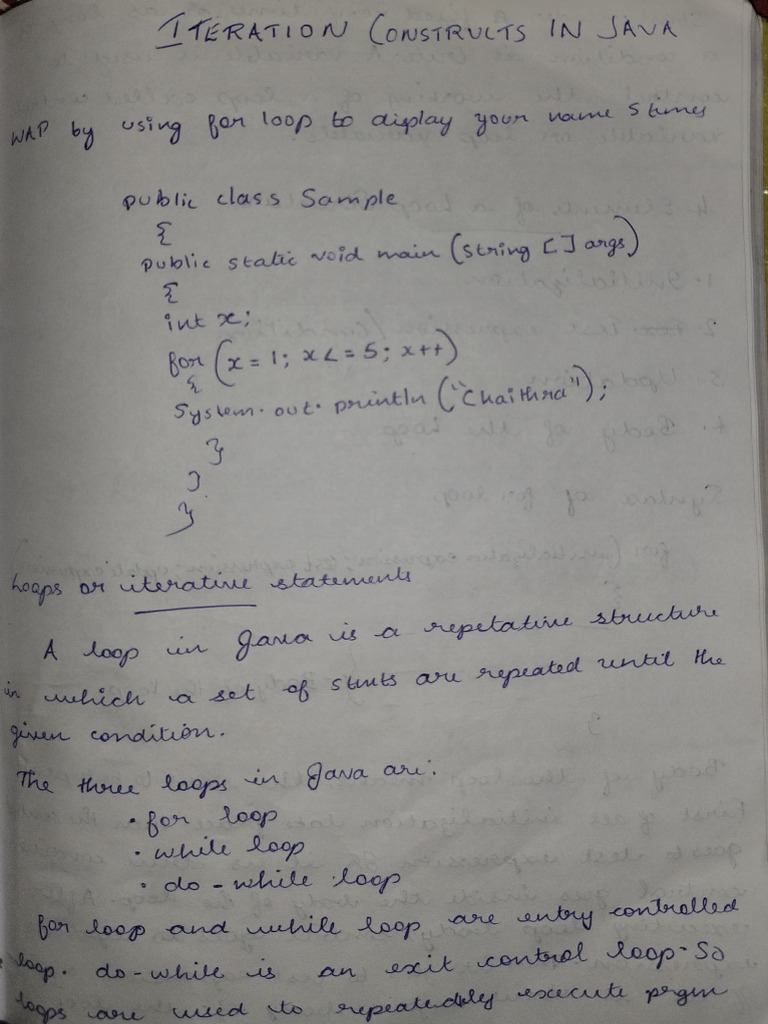 ITERATION CONSTRUCTS IN JAVA
WAP by using for loop to display your name 5 times
public class Sample
{
public static void main (string [] args)
{
int x;
for (x = 1; x <= 5; x++)
{
System.out.println ("Chaithra");
}
}
}
Loops or iterative statements
A loop in Java is a repetative structure
in which a set of stmts are repeated until the
given condition.
The three loops in Java are:
• for loop
• while loop
• do-while loop
for loop and while loop are entry controlled
loop. do-while is an exit control loop. So
loops are used to repeatedely execute prgm